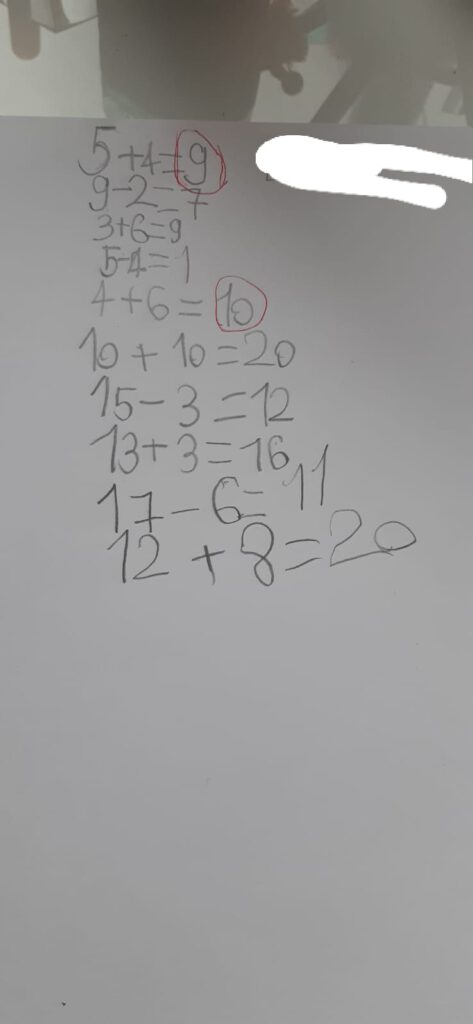 5+4=9
9-2=7
3+6=9
5-4=1
4+6=10
10+10=20
15-3=12
13+3=16
17-6=11
12+8=20